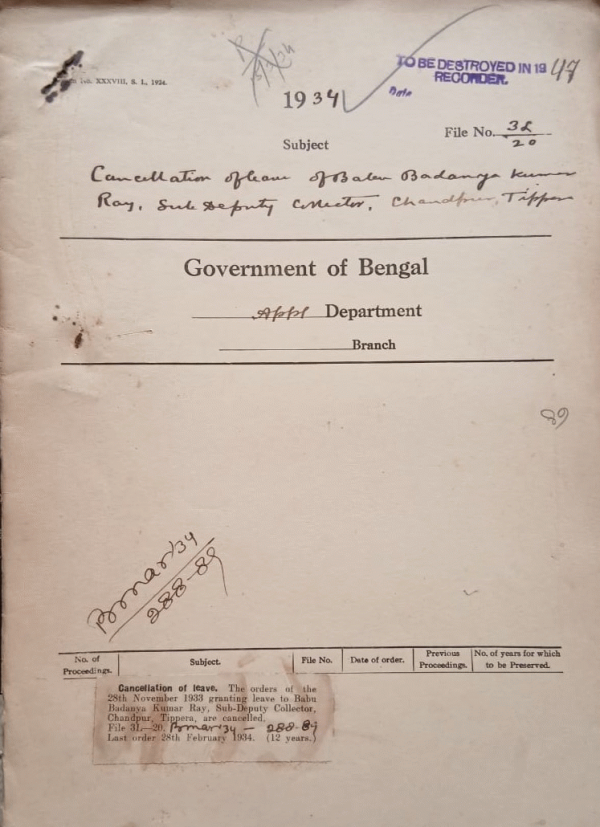 XXXVIII, S. I., 1924.
TO BE DESTROYED IN 1947
RECORDER.
Date
1934
File No. 3L/20
Subject
Cancellation of leave of Babu Badanya Kumar
Ray, Sub Deputy Collector, Chandpur, Tippera
Government of Bengal
Appt Department
Branch
89
B mar '34
288-89
No. of Proceedings.
Subject.
File No.
Date of order.
Previous Proceedings.
No. of years for which to be Preserved.
Cancellation of leave. The orders of the
28th November 1933 granting leave to Babu
Badanya Kumar Ray, Sub-Deputy Collector,
Chandpur, Tippera, are cancelled.
File 3L—20. B mar '34 — 288-89
Last order 28th February 1934. (12 years.)